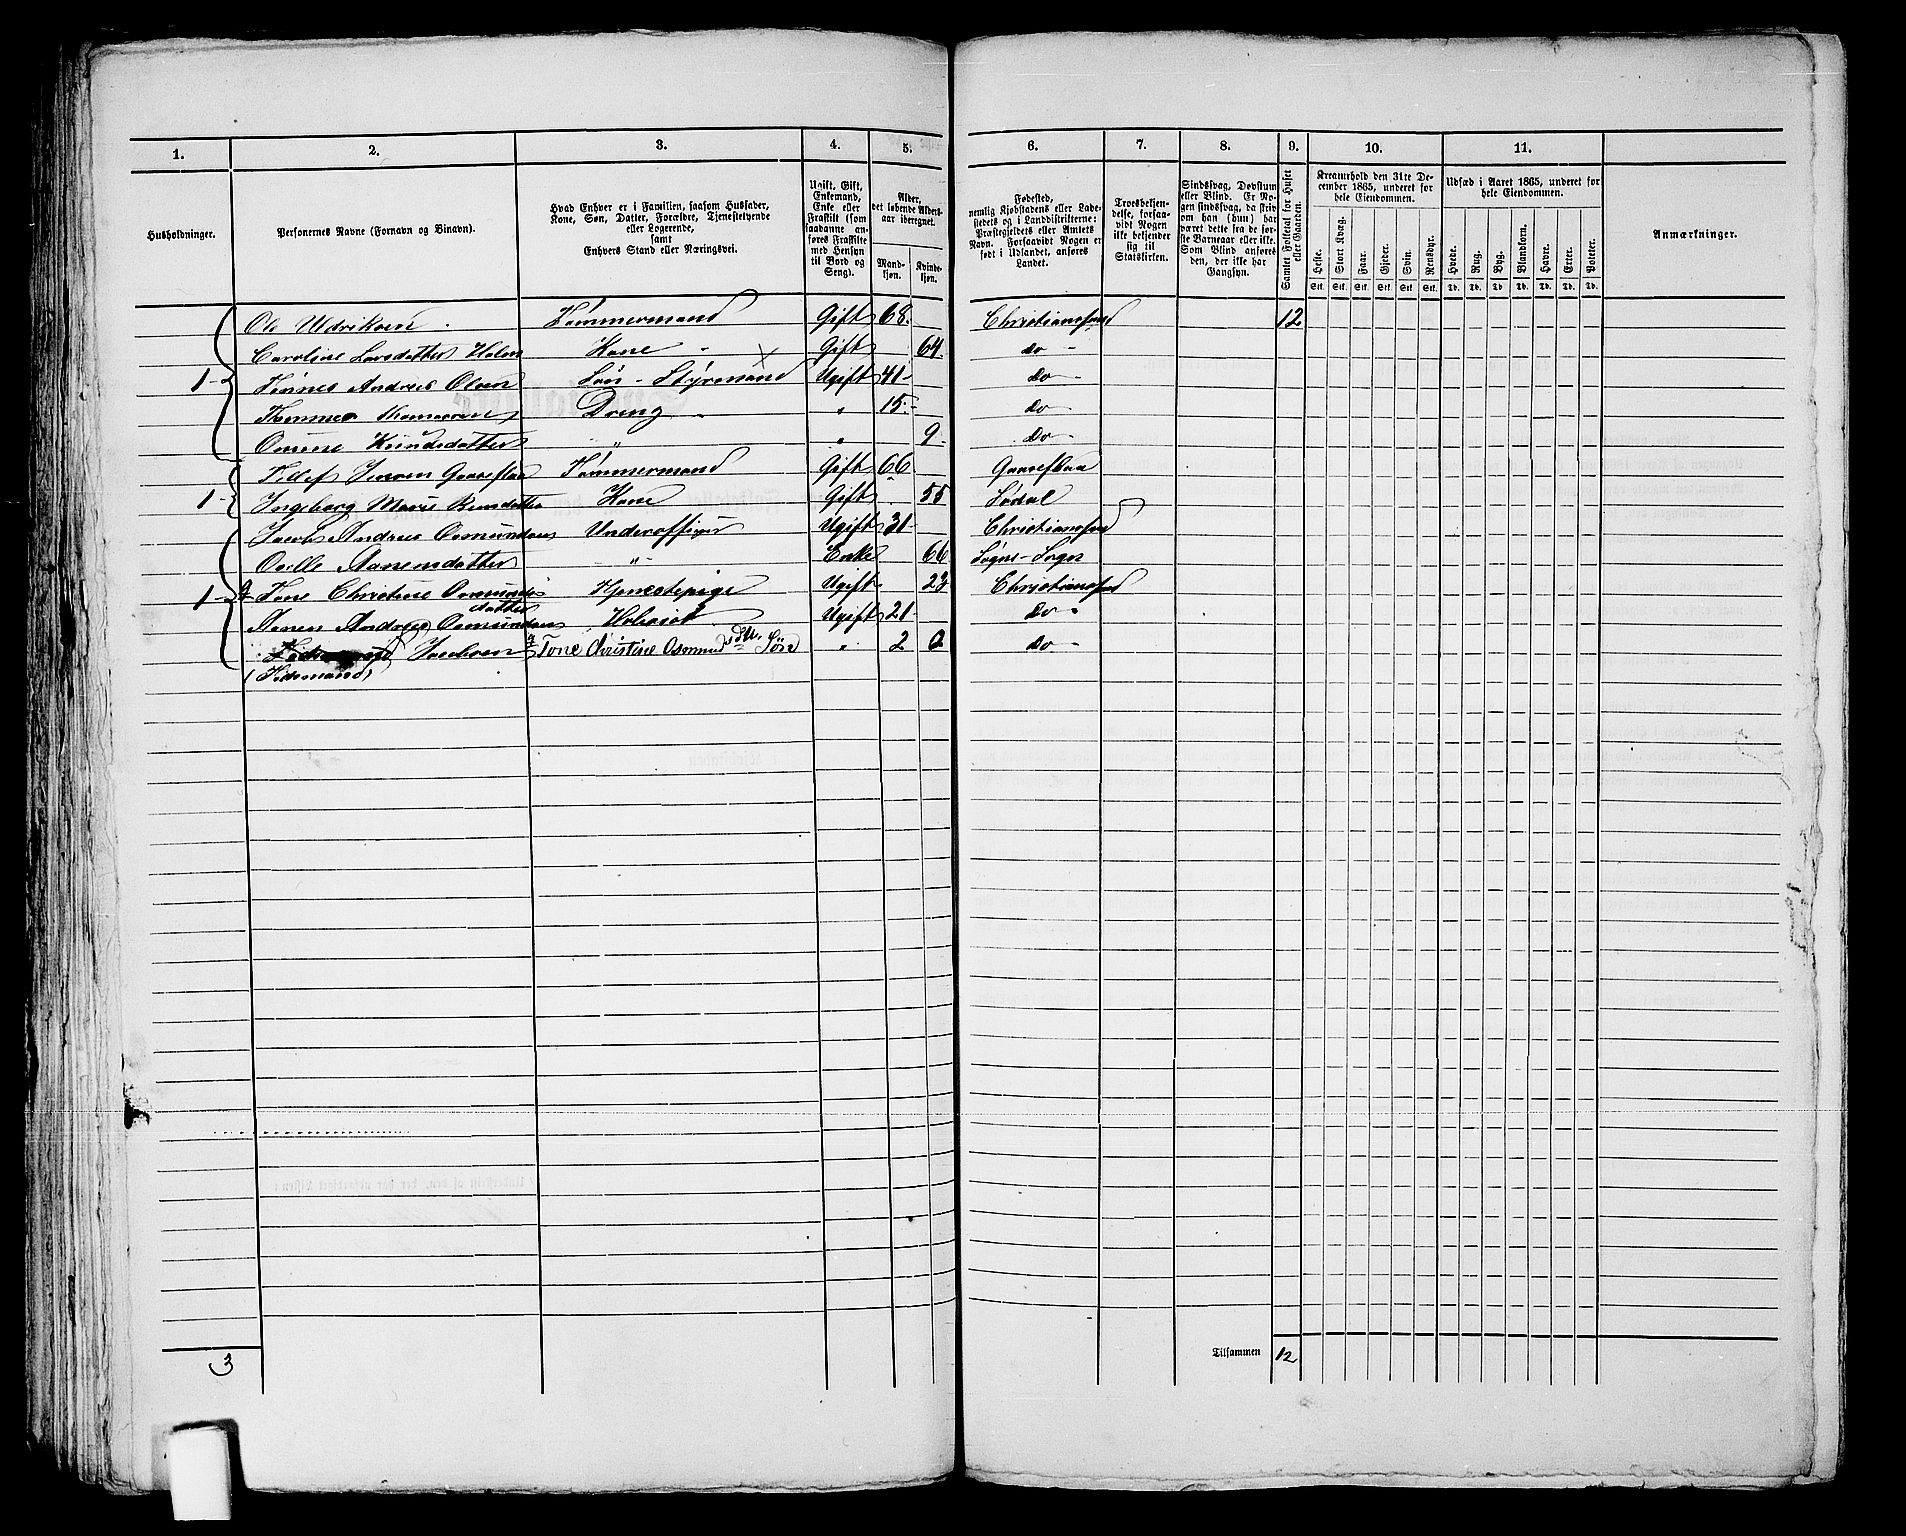 1. 2. 3. 4. 5. 6. 7. 8. 9. 10. 11.
Husholdninger.
Personernes Navne (Fornavn og Binavn).
Hvad Enhver er i Familien, saasom Husfader,
Kone, Søn, Datter, Forældre, Tjenestetyende
eller Logerende,
samt
Enhvers Stand eller Næringsvei.
Ugift, Gift,
Enkemand,
Enke eller
Fraskilt (som
saadanne an-
føres Fraskilte
med Hensyn
til Bord og
Seng).
Alder,
det løbende Alders-
aar iberegnet.
Mand-
kjøn.
Kvinde-
kjøn.
Fødested,
nemlig Kjøbstadens eller Lade-
stedets og i Landdistrikterne:
Præstegjeldets eller Amtets
Navn. Forsaavidt Nogen er
født i Udlandet, anføres
Landet.
Troesbekjen-
delse, forsaa-
vidt Nogen
ikke bekjender
sig til
Statskirken.
Sindssvag, Døvstum
eller Blind. Er No-
gen sindssvag, da skriv
om han (hun) har
været dette fra de før-
ste Barneaar eller ikke.
Som Blind anføres
den, der ikke har
Gangsyn.
Samlet Folketal for Huset
eller Gaarden.
Kreaturhold den 31te De-
cember 1865, underet for
hele Eiendommen.
Heste. Stort Kvæg. Faar. Gjeder. Svin. Rensdyr.
Stk. Stk. Stk. Stk. Stk. Stk.
Udsæd i Aaret 1865, underet for
hele Eiendommen.
Hvede. Rug. Byg. Blandkorn. Havre. Erter. Poteter.
Td. Td. Td. Td. Td. Td. Td.
Anmærkninger.
Ole Udriksen Tømmermand Gift 68. Christianssand 12
Caroline Larsdatter Holm Kone Gift 64. do -
1 - Tønnes Andreas Olsen Søn - Styrmand Ugift 41 - do -
Thommes Dreng " 15. - do
Knudsdatter " " 9. do -
Jensen Tømmermand Gift 66
1 - Ingeborg Marie Kone Gift 55 Lødal
Jacob Andreas Osmundsen Underofficer Ugift 31 - Christianssand
Aanensdatter - " - Enke 66 Søgne - Sogn
1 - Tone Christine Osmunds Tjenestepige Ugift 23 Christianssand
datter
Aanen Andreas Osmundsen Ugift 21 - Do -
Jacobsen Tone Christine Osmunds Dtr. Søn " 2 0 do -
(Tidemand)
3 Tilsammen 12